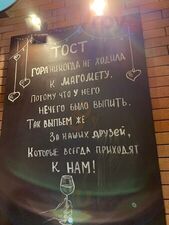 ТОСТ
ГОРА НИКОГДА НЕ ХОДИЛА
К МАГОМЕТУ.
ПОТОМУ ЧТО У НЕГО
НЕЧЕГО БЫЛО ВЫПИТЬ.
ТАК ВЫПЬЕМ ЖЕ
ЗА НАШИХ ДРУЗЕЙ,
КОТОРЫЕ ВСЕГДА ПРИХОДЯТ
К НАМ!